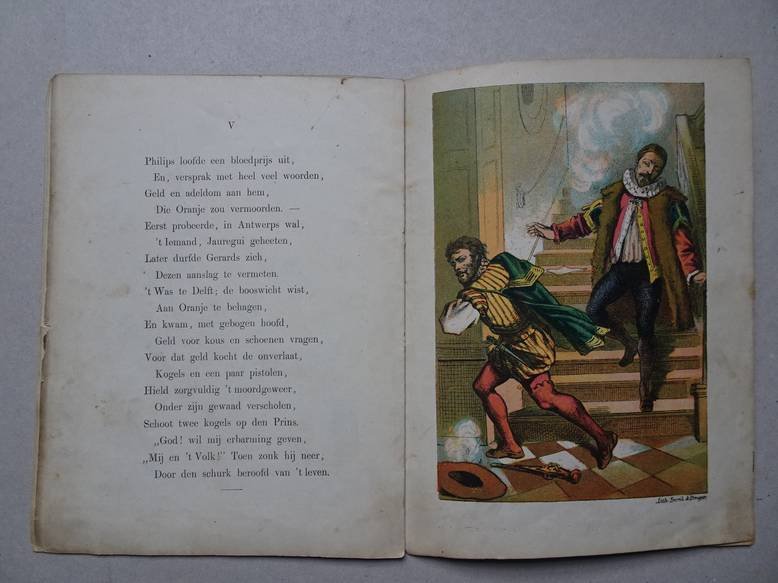 V
Philips loofde een bloedprijs uit,
En, versprak met heel veel woorden,
Geld en adeldom aan hem,
Die Oranje zou vermoorden. —
Eerst probeerde, in Antwerps wal,
't Iemand, Jauregui geheeten,
Later durfde Gerards zich,
Dezen aanslag te vermeten.
't Was te Delft; de booswicht wist,
Aan Oranje te behagen,
En kwam, met gebogen hoofd,
Geld voor kous en schoenen vragen,
Voor dat geld kocht de onverlaat,
Kogels en een paar pistolen,
Hield zorgvuldig 't moordgeweer,
Onder zijn gewaad verscholen,
Schoot twee kogels op den Prins.
„God! wil mij erbarming geven,
„Mij en 't Volk!" Toen zonk hij neer,
Door den schurk beroofd van 't leven.
Lith. Emrik & Binger